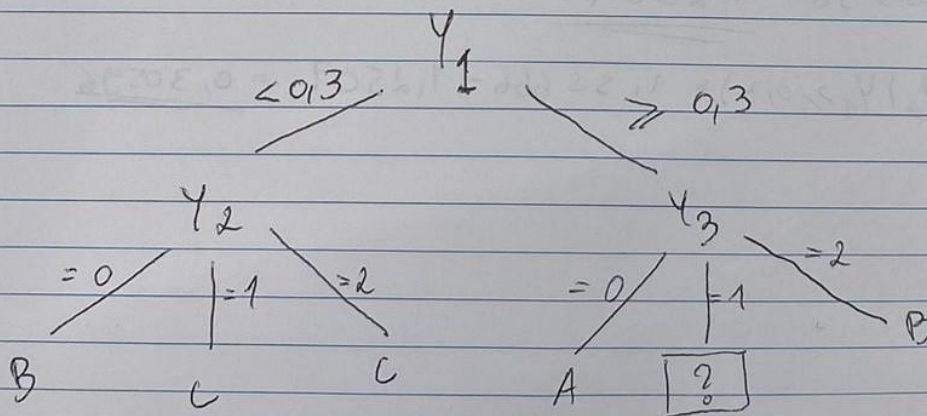 Y1
<0,3 ≥ 0,3
Y2 Y3
=0 =1 =2 =0 =1 =2
B C C A ? B